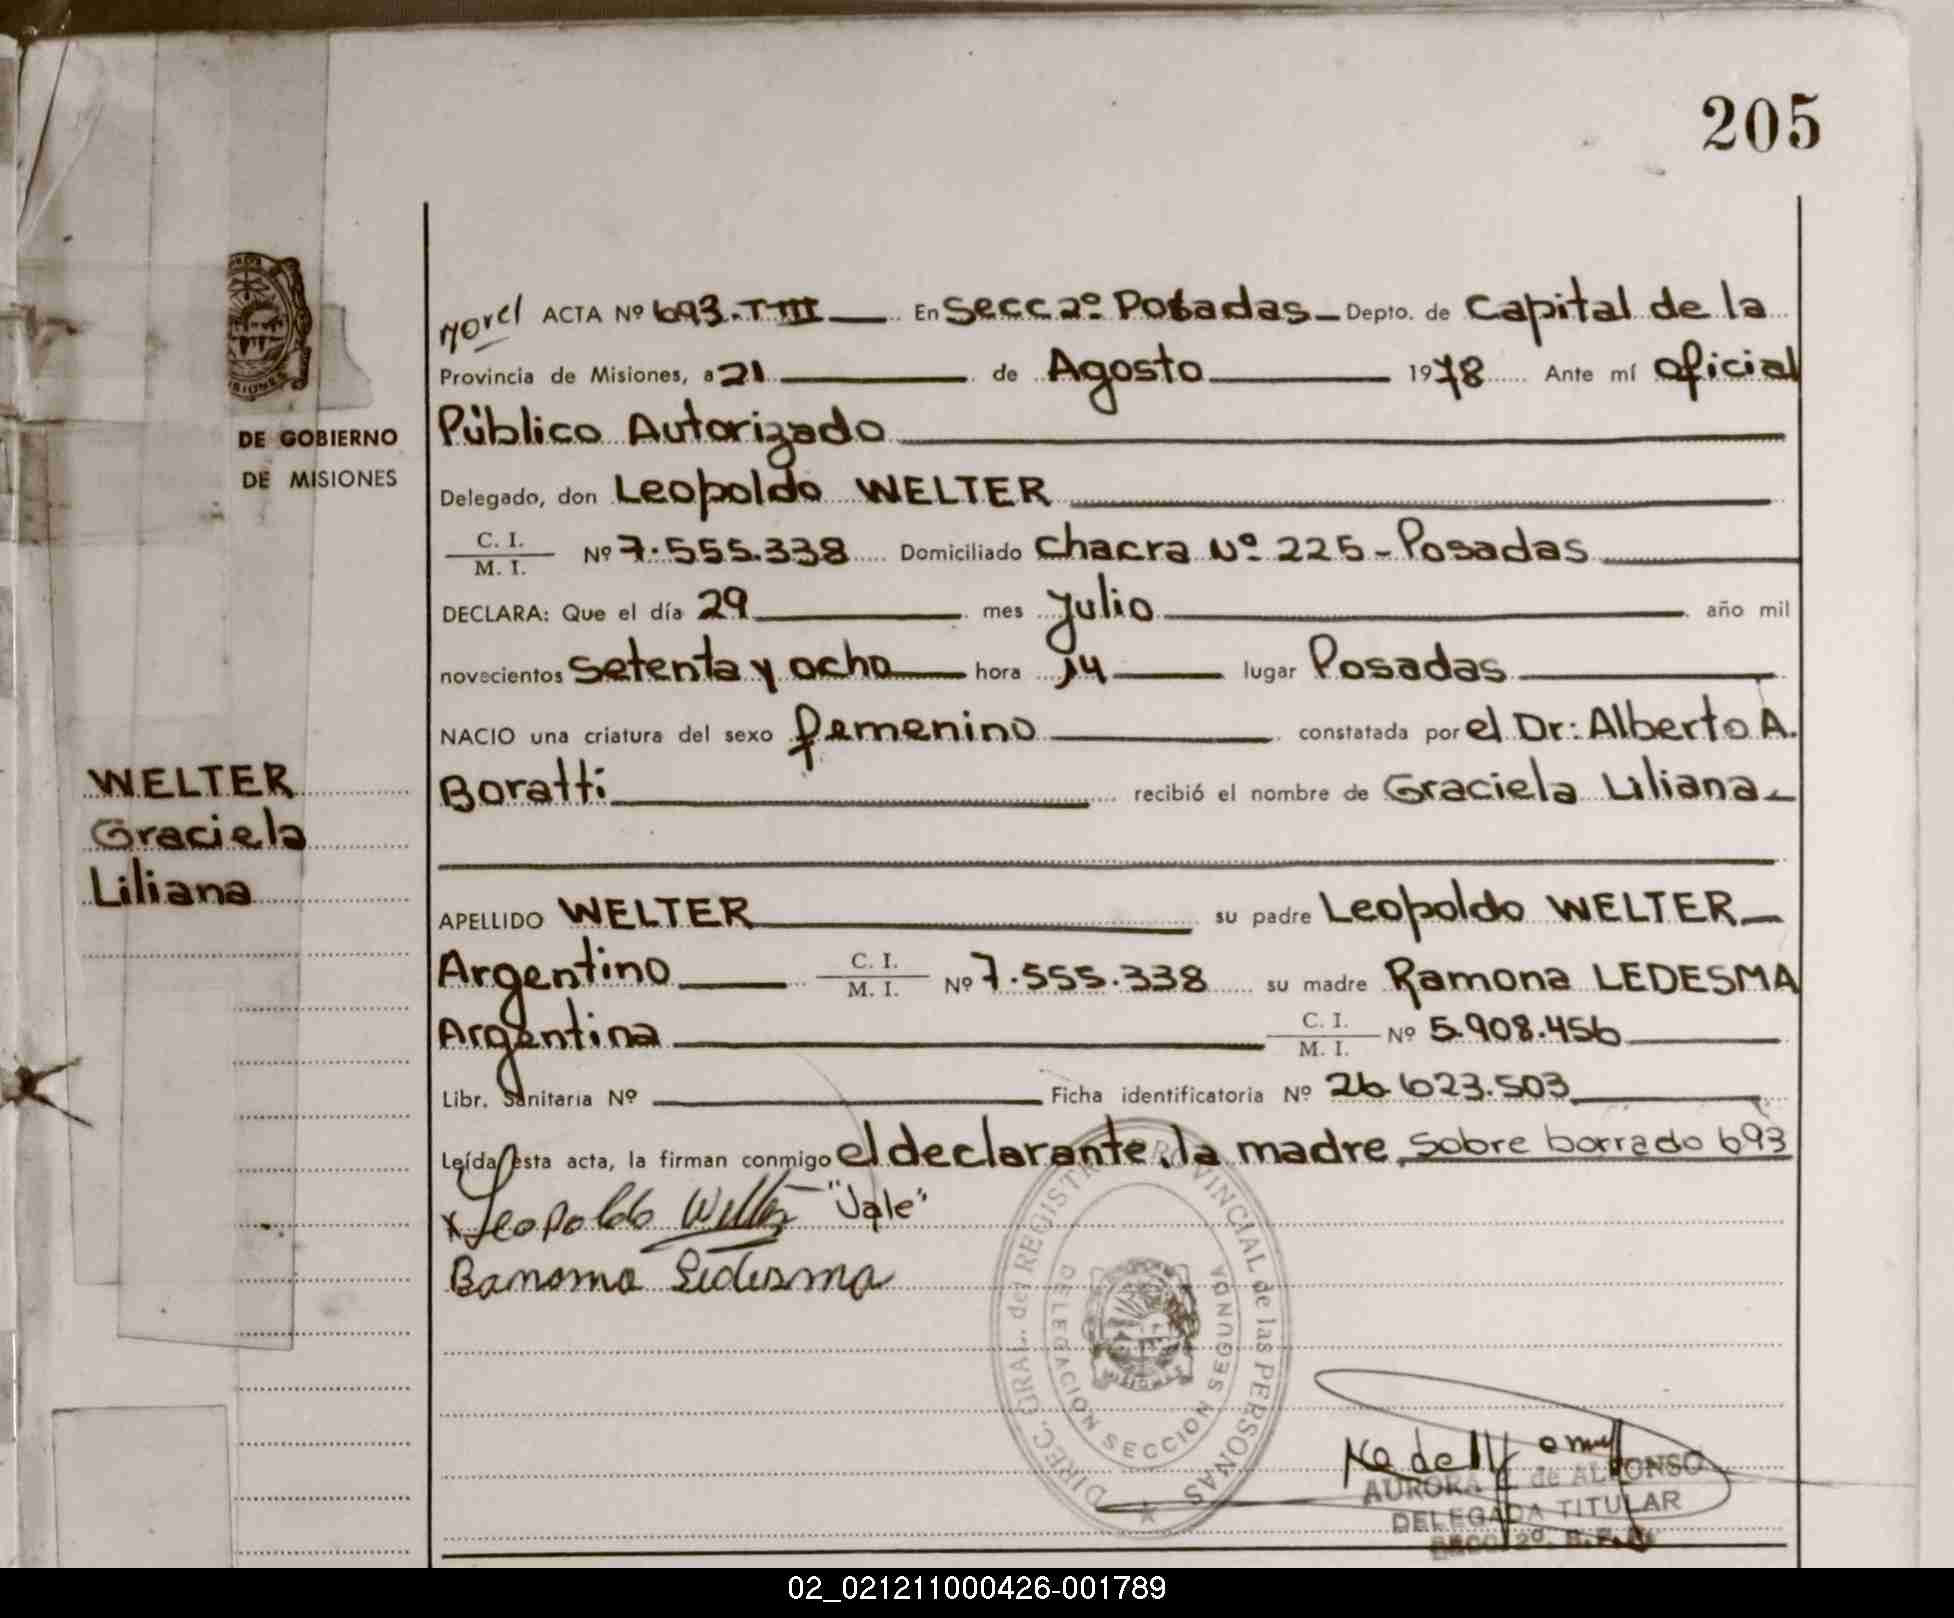 205
norel ACTA Nº 693.T III En Secc 2º Posadas Depto. de Capital de la
Provincia de Misiones, a 21 de Agosto 1978 Ante mí Oficial
Público Autorizado
DE GOBIERNO
DE MISIONES
Delegado, don Leopoldo WELTER
C. I.
M. I. Nº 7.555.338 Domiciliado Chacra Nº 225 - Posadas
DECLARA: Que el día 29 mes Julio año mil
novecientos Setenta y ocho hora 14 lugar Posadas
NACIO una criatura del sexo femenino constatada por el Dr: Alberto A.
Boratti recibió el nombre de Graciela Liliana
WELTER
Graciela
Liliana
APELLIDO WELTER su padre Leopoldo WELTER
Argentino C. I.
M. I. Nº 7.555.338 su madre Ramona LEDESMA
Argentina C. I.
M. I. Nº 5.908.456
Libr. Sanitaria Nº Ficha identificatoria Nº 26.623.503
Leída esta acta, la firman conmigo el declarante, la madre, Sobre borrado 693
x Leopoldo Welter "Vale"
Ramona Ledesma
DIREC. GRAL. del REGISTRO PROVINCIAL de las PERSONAS
DELEGACION SECCION SEGUNDA
MISIONES
AURORA de ALFONSO
DELEGADA TITULAR
SECC. 2º. R.P.
02_021211000426-001789